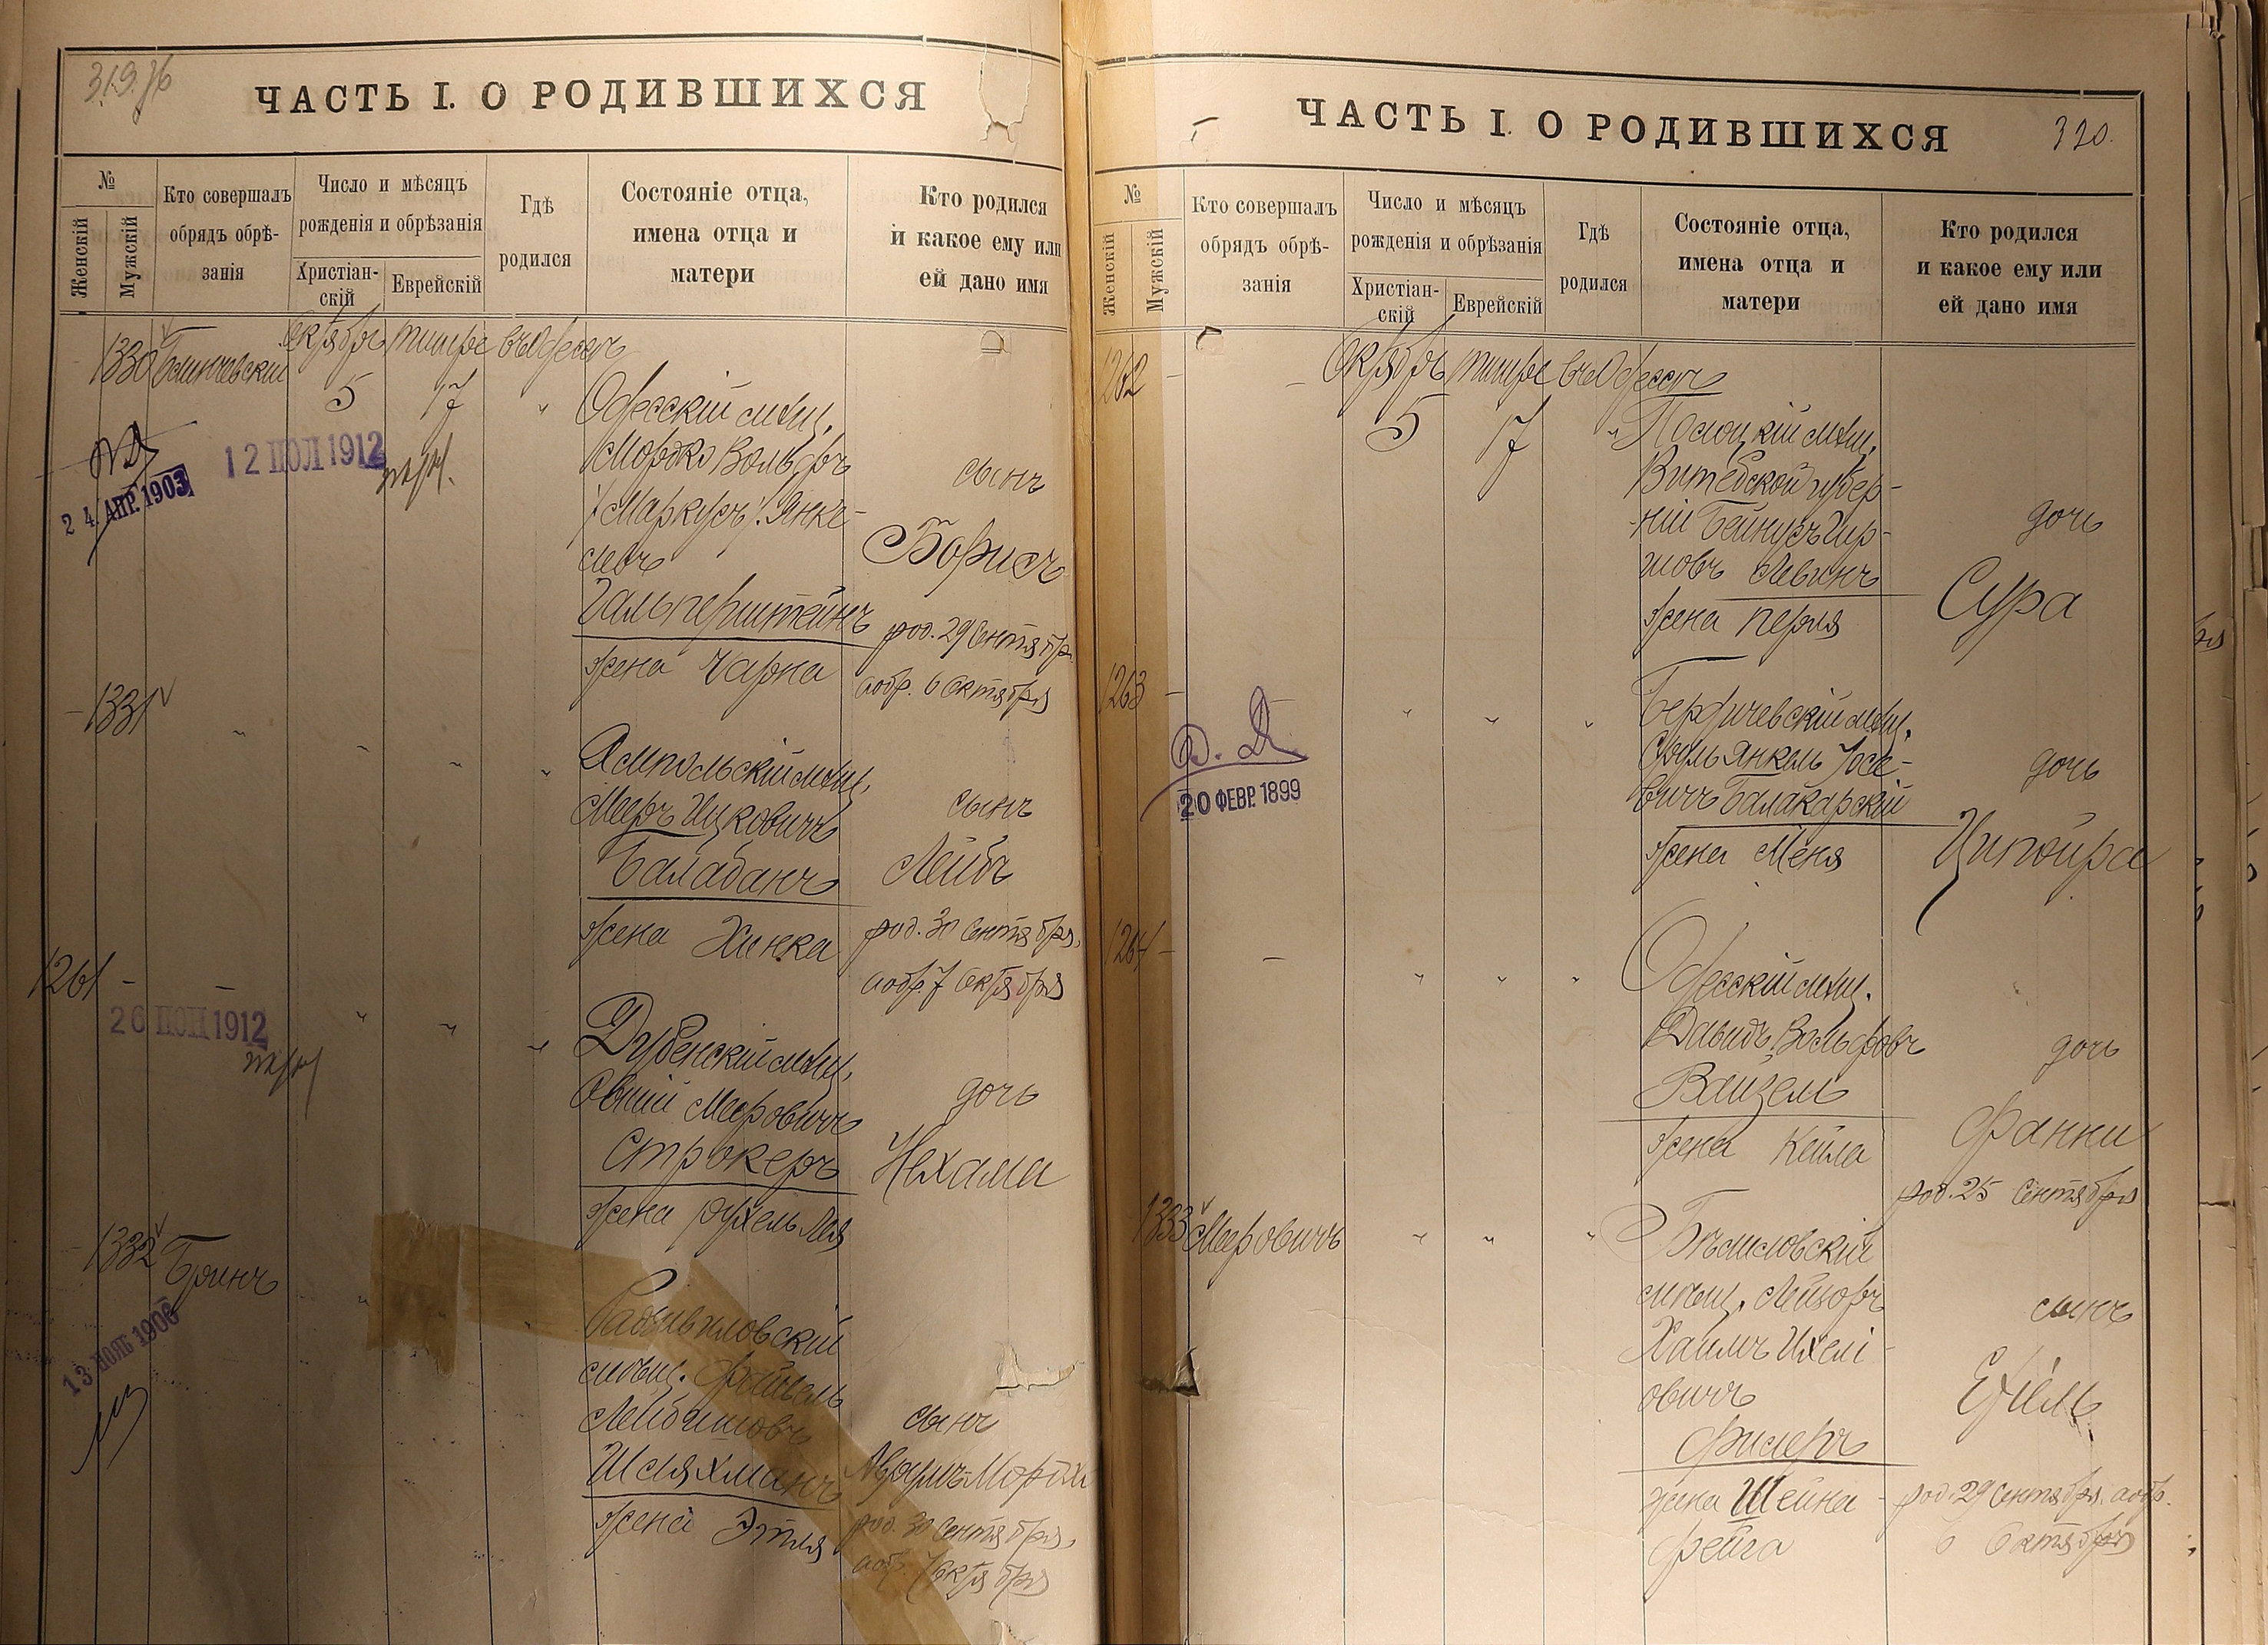 319.
ЧАСТЬ I. О РОДИВШИХСЯ
№
Женскій
Мужскій
Кто совершалъ
обрядъ обрѣ-
занія
Число и мѣсяцъ
рожденія и обрѣзанія
Христіан-
скій
Еврейскій
Гдѣ
родился
Состояніе отца,
имена отца и
матери
Кто родился
и какое ему или
ей дано имя
1330
Октябрь Тишре въ Одессѣ
5 17 "
Одесскій мѣщ.
Мордко Вольфъ
/Маркусъ/ Янке-
левъ
Гальперштейнъ
жена Чарна
сынъ
Борисъ
род. 29 Сентября
а обр. 6 Октября
24 АПР. 1903
12 ІЮЛ 1912
1331
" " " "
Ямпольскій мѣщ.
Мееръ Ицковичъ
Балабанъ
жена Хинка
сынъ
Лейбъ
род. 30 Сентября,
а обр. 7 Октября
1261 - -
26 1912
" " "
Дубенскій мѣщ.
Овшій Мееровичъ
Строкеръ
жена Рухель Лея
дочь
Нехама
1332 Бринъ
13 НОЯБ 1906
Радзивиловскій
мѣщ. Файвель
Лейбишовъ
Шляхманъ
жена Этля
сынъ
Аврумъ-Мордхе
род. 30 Сентября,
а обр. 7 Октября
ЧАСТЬ I. О РОДИВШИХСЯ
320.
№
Женскій
Мужскій
Кто совершалъ
обрядъ обрѣ-
занія
Число и мѣсяцъ
рожденія и обрѣзанія
Христіан-
скій
Еврейскій
Гдѣ
родился
Состояніе отца,
имена отца и
матери
Кто родился
и какое ему или
ей дано имя
1262 - -
Октябрь Тишре въ Одессѣ
5 17 "
Полоцкій мѣщ.
Витебской губер-
ніи Бейнусъ Гир-
шовъ Левинъ
жена Перля
дочь
Сура
1263 -
20 ФЕВР. 1899
" " "
Бердичевскій мѣщ.
Сруль Янкель Іосе-
вичъ Балакарскій
жена Меня
дочь
Ципойра
1264 - -
" " "
Одесскій мѣщ.
Давидъ Вольфовъ
Вайцель
жена Кейла
дочь
Фанни
род. 25 Сентября
1333 Мееровичъ
" " "
Бѣлиловскій
мѣщ. Лейзоръ
Хаимъ Ихелі-
овичъ
Фишеръ
жена Шейна-
Фейга
сынъ
Ехіель
род. 29 Сентября, а обр.
6 Октября